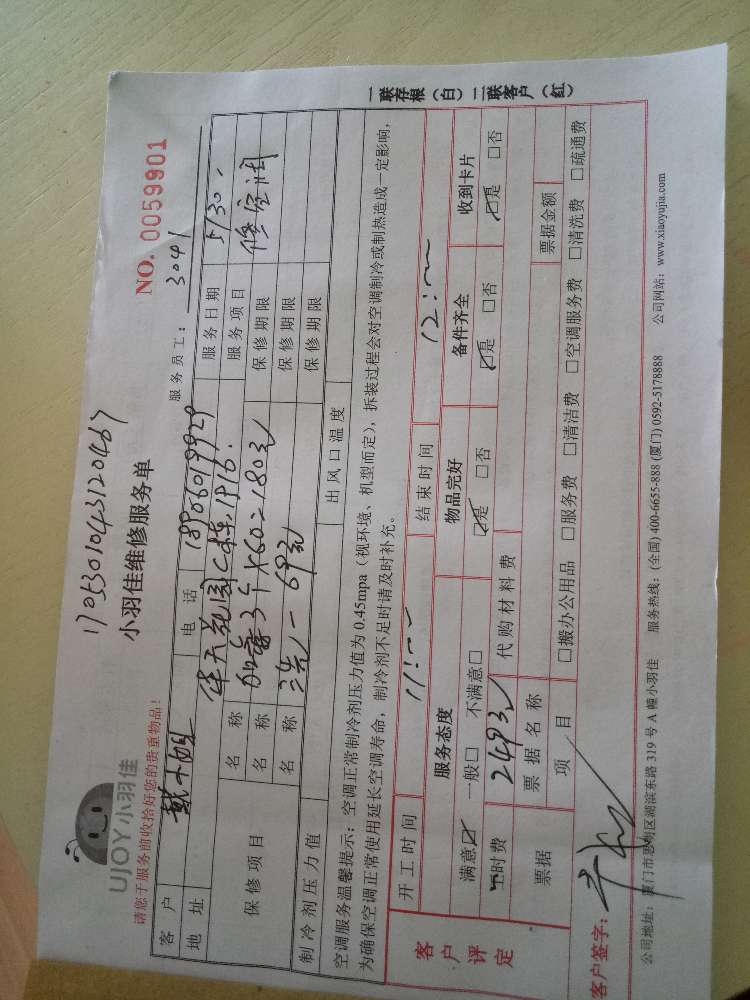 17053010431204b7
NO. 0059901
UJOY小羽佳
小羽佳维修服务单
服务员工： 3041
请您于服务前收拾好您的贵重物品！
客户 戴小姐 电话 18906019929 服务日期 5/30.
地址 华天花园C栋1916. 服务项目 修空调
保修项目 名称 加雪3个×60=180元 保修期限
名称 洗一69元 保修期限
名称 保修期限
制冷剂压力值 出风口温度
空调服务温馨提示：空调正常制冷剂压力值为 0.45mpa（视环境、机型而定），拆装过程会对空调制冷或制热造成一定影响，
为确保空调正常使用延长空调寿命，制冷剂不足时请及时补充。
客户评定
开工时间 11: 结束时间 12:
服务态度 物品完好 备件齐全 收到卡片
满意☑ 一般□ 不满意□ ☑是 □否 ☑是 □否 ☑是 □否
工时费 249元 代购材料费
票据 票据名称 票据金额
项目 □搬办公用品 □服务费 □清洁费 □空调服务费 □清洗费 □疏通费
客户签字：
公司地址：厦门市思明区湖滨东路 319 号 A 幢小羽佳 服务热线：(全国) 400-6655-888 (厦门) 0592-5178888 公司网站：www.xiaoyujia.com
一联存根（白）二联客户（红）